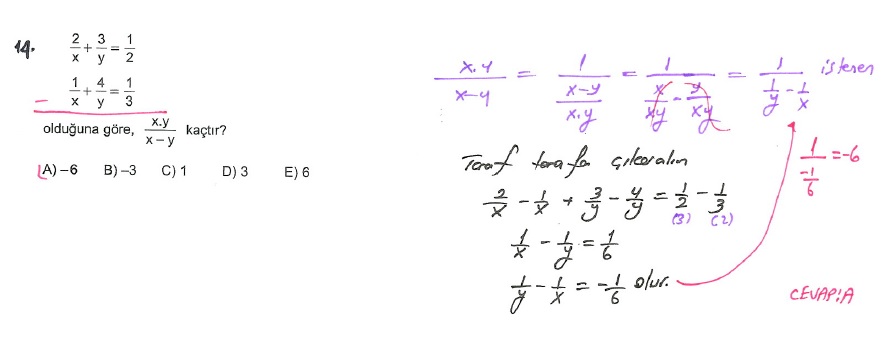 14. 2/x + 3/y = 1/2
1/x + 4/y = 1/3
olduğuna göre, x.y/(x−y) kaçtır?
A) −6 B) −3 C) 1 D) 3 E) 6
x.y/(x−y) = 1/((x−y)/(x.y)) = 1/(x/(xy) − y/(xy)) = 1/(1/y − 1/x) istenen
Taraf tarafa çıkaralım
2/x − 1/x + 3/y − 4/y = 1/2 − 1/3
(3) (2)
1/x − 1/y = 1/6
1/y − 1/x = −1/6 olur.
1/(−1/6) = −6
CEVAP:A